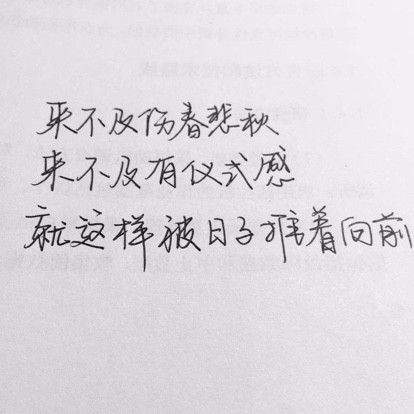 来不及伤春悲秋
来不及有仪式感
就这样被日子推着向前